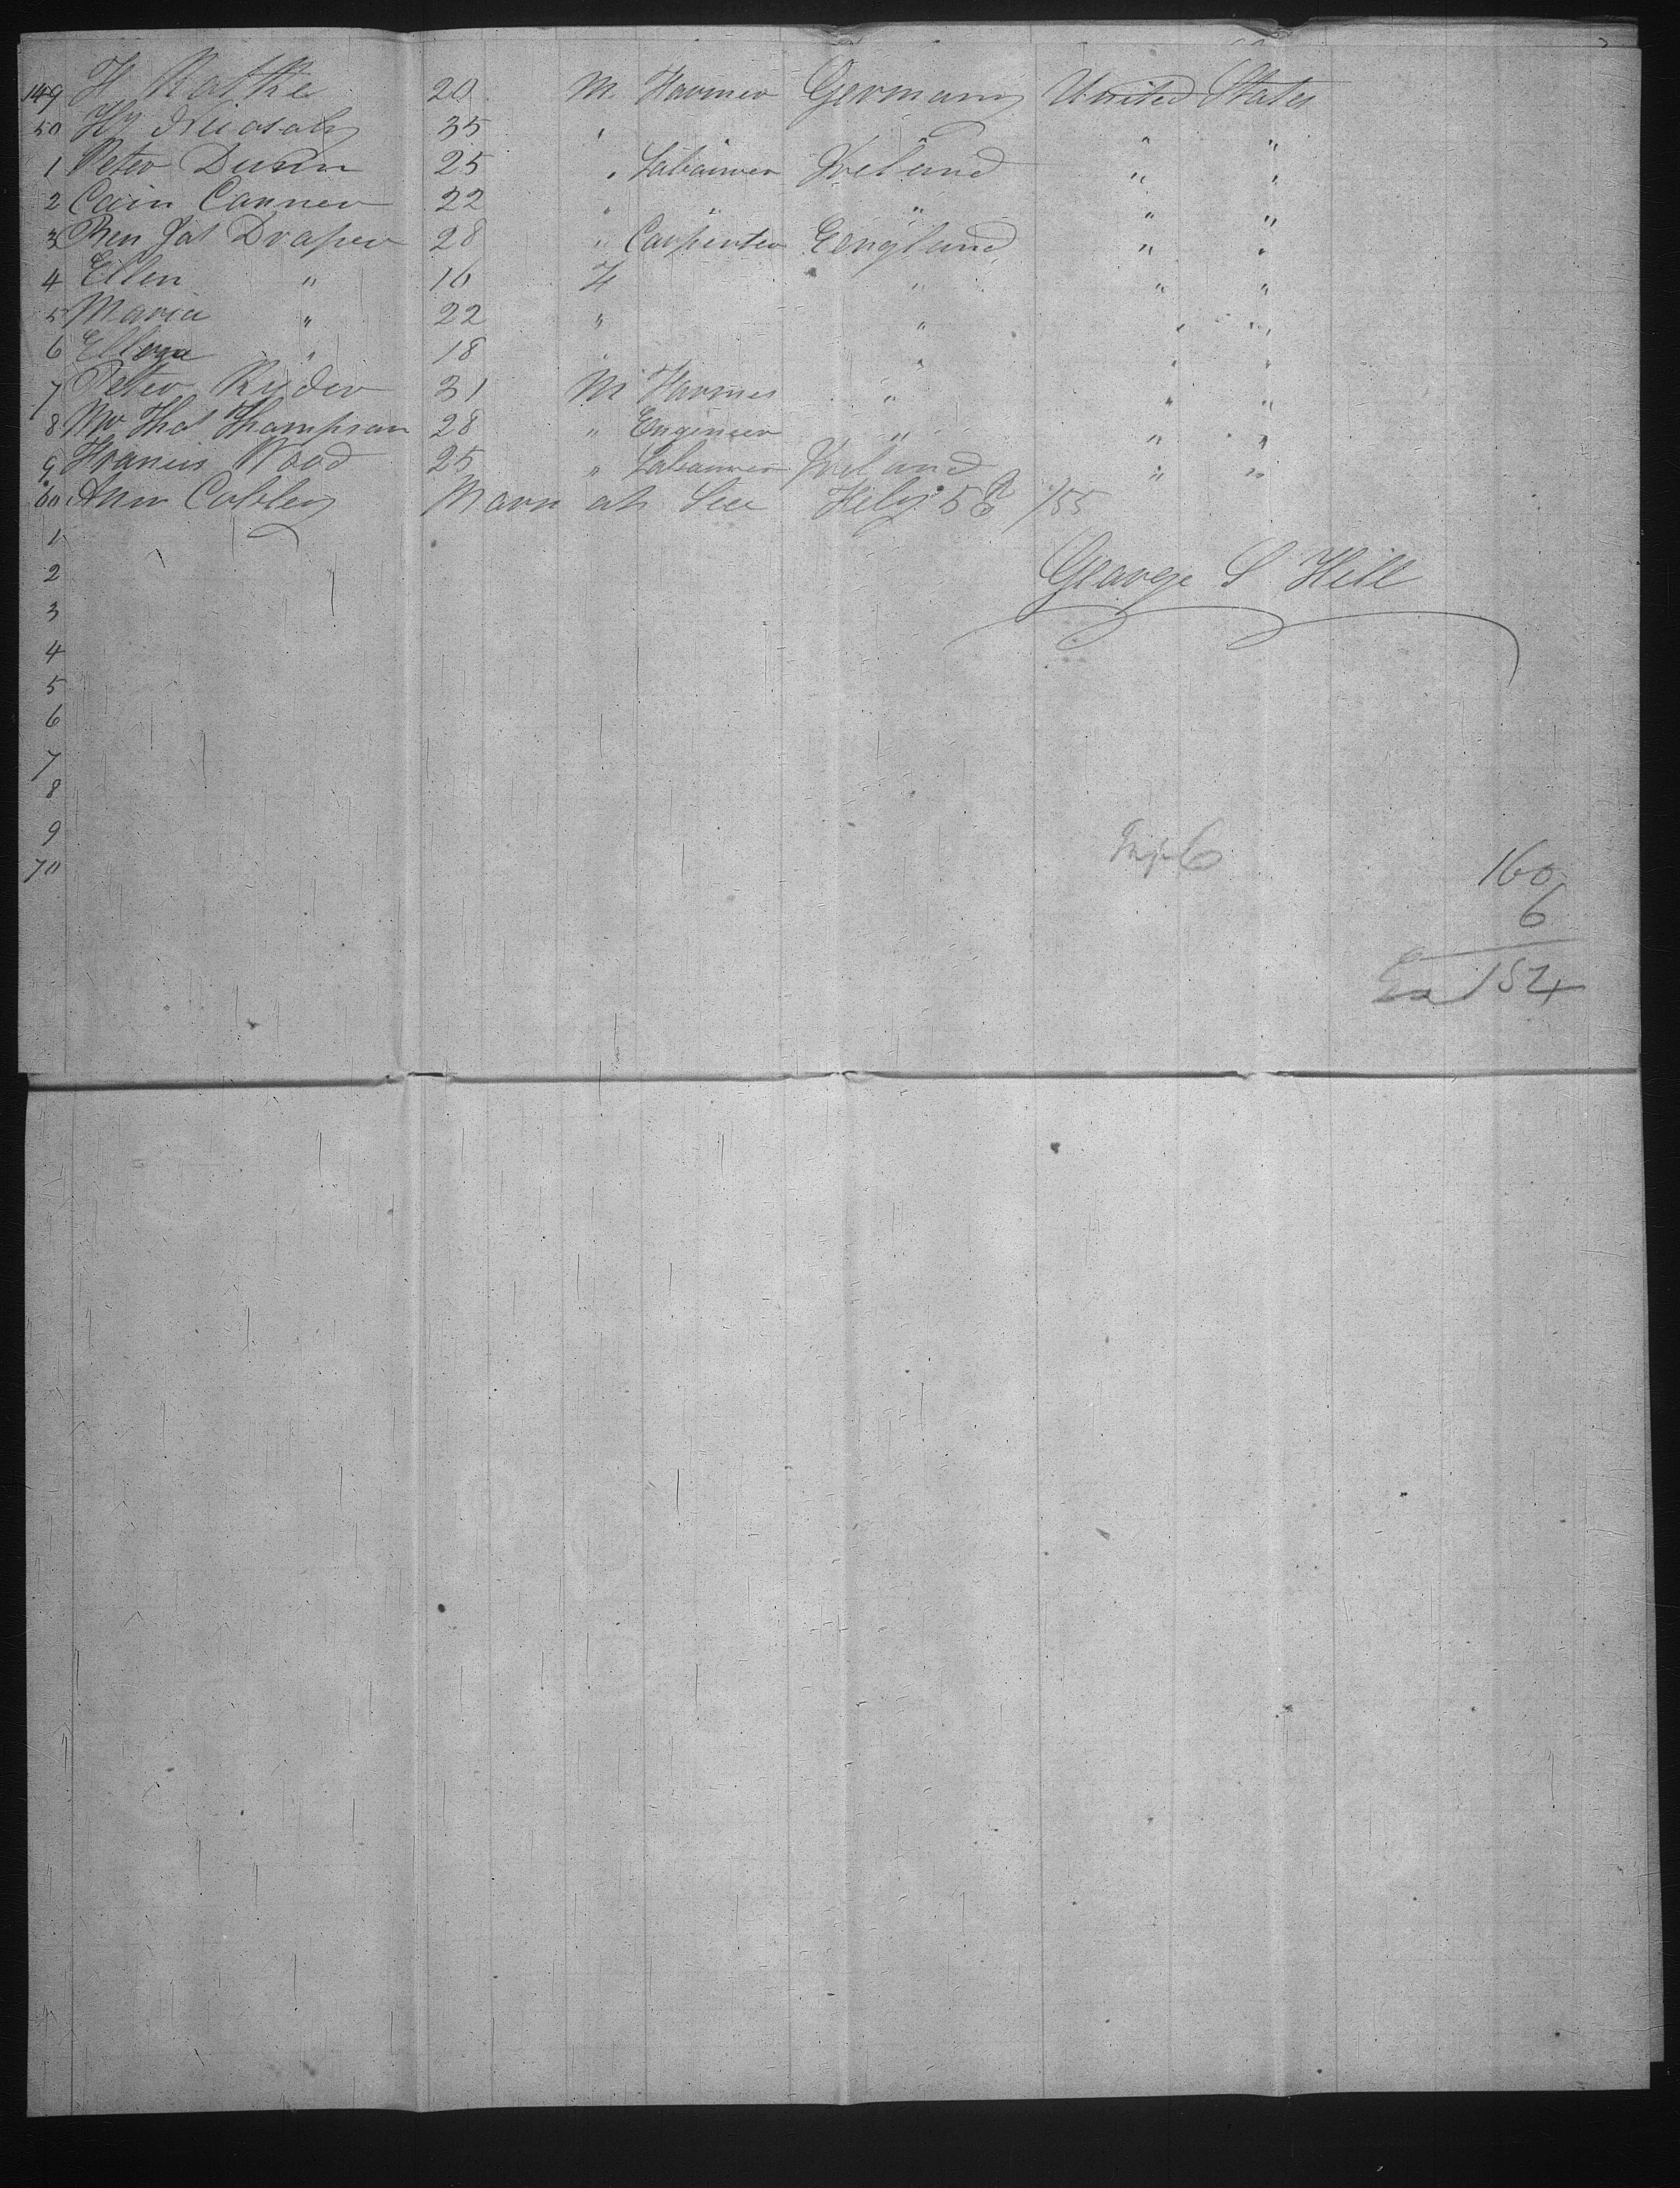 149 H Rathke 20 M. Farmer Germany United States
50 Hy 35 " " " "
1 Peter Dunn 25 " Labourer Ireland " "
2 Cain Conner 22 " " " " "
3 Ben Jas Draper 28 " Carpenter England " "
4 Ellen " 16 F " " "
5 Maria " 22 " " " "
6 " 18 " " " "
7 Peter Ryder 31 M Farmer " " "
8 Mr Thos Thompson 28 " Engineer " " "
9 Francis Wood 25 " Labourer Ireland " "
60 Ann Cobley Born at Sea Feby 5th /55
1
2 George S Hill
3
4
5
6
7
8
9
70 160
6
154